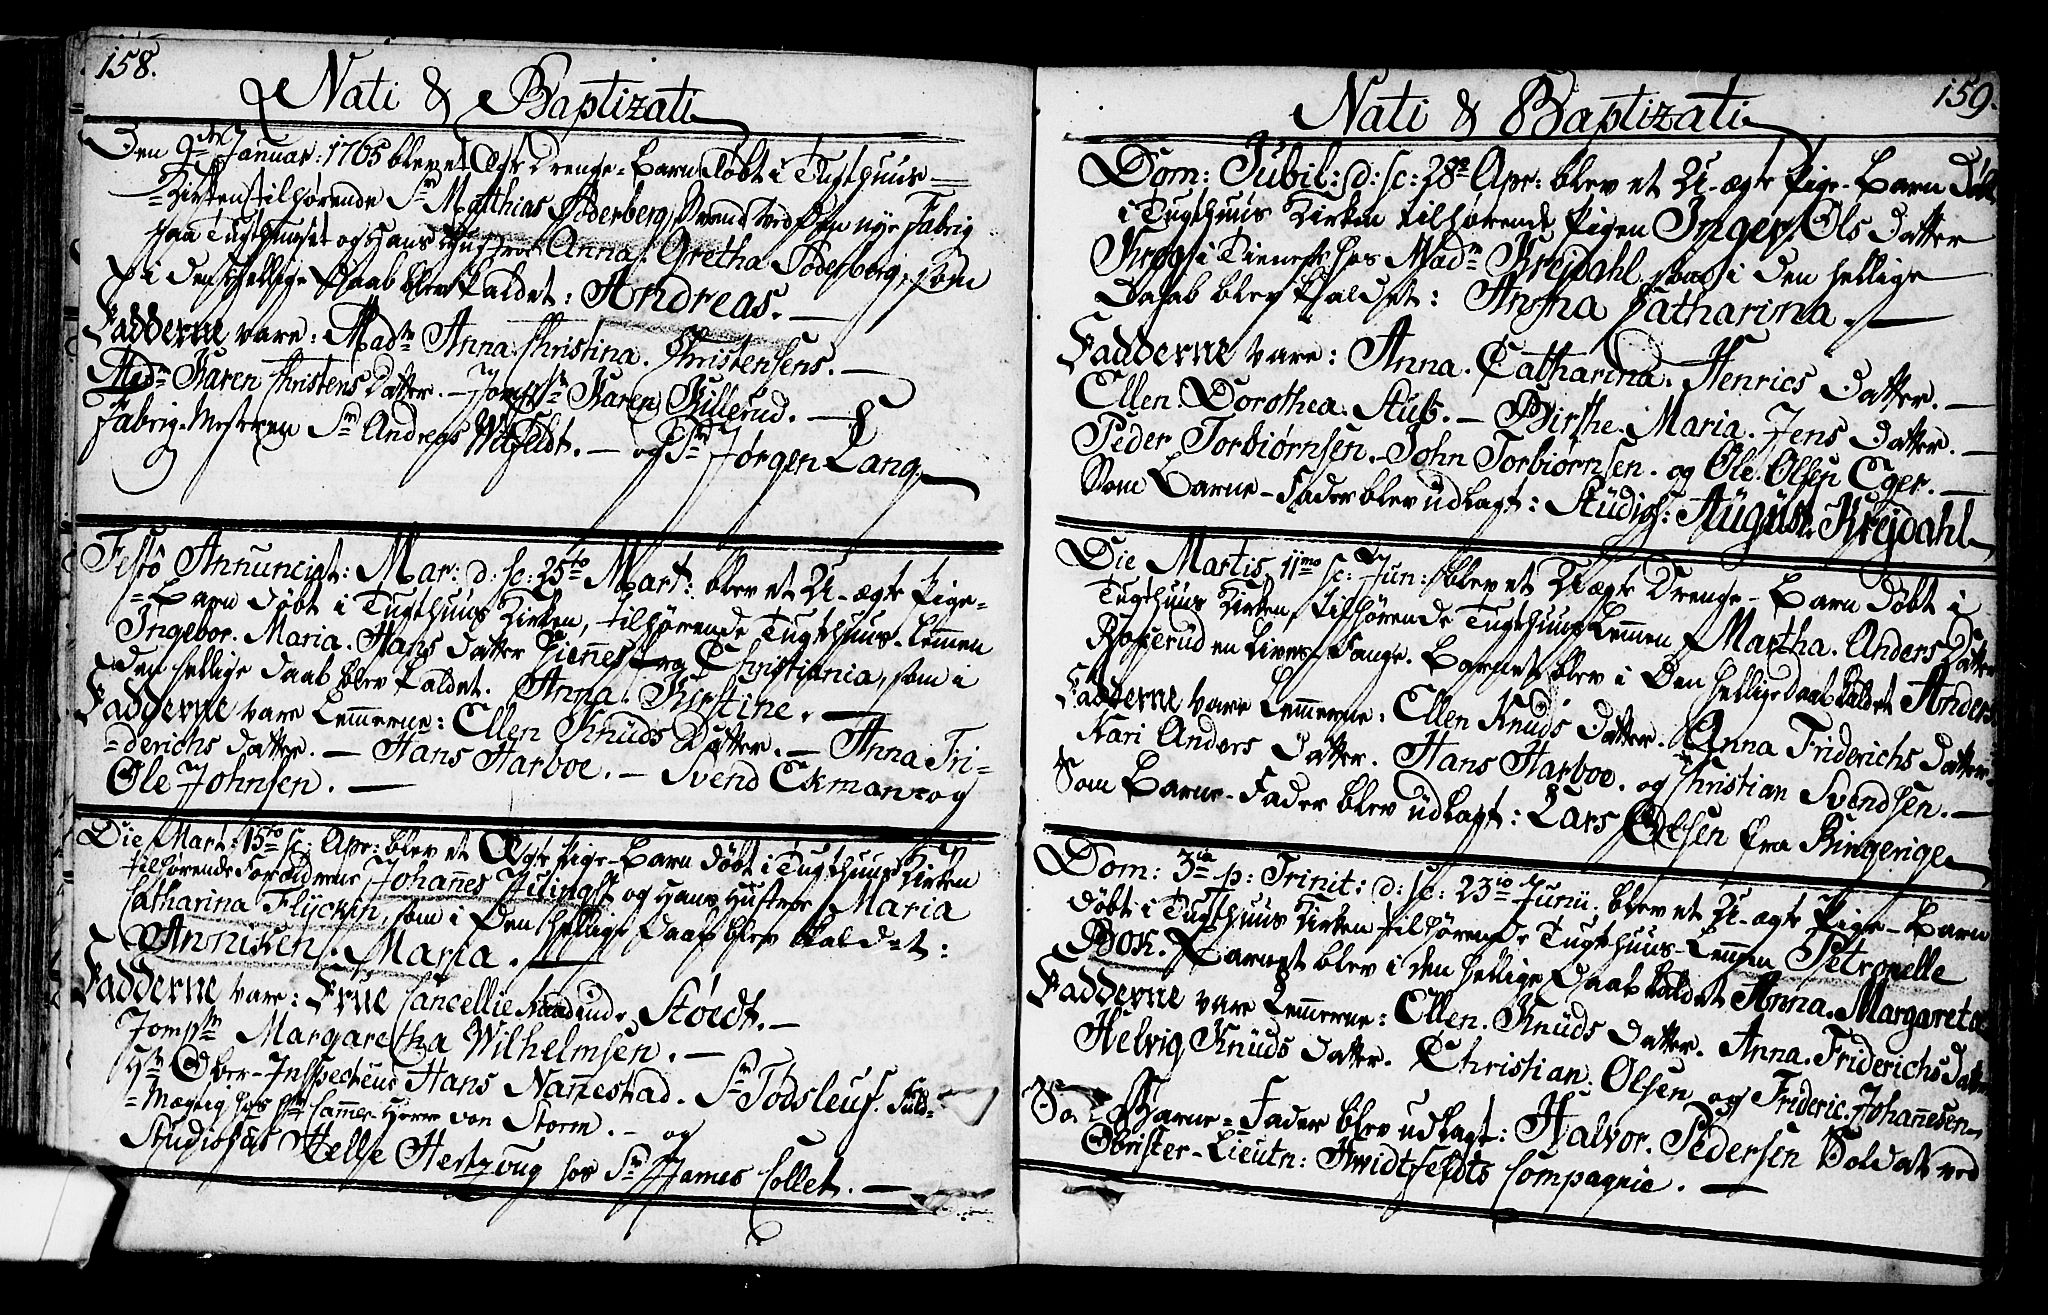 158.
Nati & Baptizati
Den 9de Januar: 1765 blev et Ægte Drenge-Barn döbt i Tugthuus-
Kirken tilhörende Sr Matthias Söderberg Svend ved Den nye Fabrig
paa Tugthuuset og Hans Hustroe Anna Gretha Söderberg, som
i Den Hellige Daab blev kaldet: Andreas. —
Fadderne vare: Madm Anna Christina. Christensens. —
Madm Karen Christens Datter. — Jompfr Karen Killerud. —
Fabrig-Mesteren Sr Andreas — og Sr Jörgen Lang,
Festo Annunciat: Mar: d: sc: 25to Mart: blev et U-ægte Pige-
-Barn döbt i Tugthuus Kirken, tilhörende Tugthuus-Lemmen
Ingebor. Maria. Hans Datter fra Christiania, som i
den hellige Daab blev kaldet. Anna. Kirstine. —
Fadderne vare Lemmerne: Ellen Knüds Datter. — Anna Fri-
-derichs Datter. — Hans Harboe. — Svend Ekman og
Ole Johnsen. —
Die Mart: 15to sc: Apr: blev et Ægte Pige-Barn döbt i Tugthuus Kirken
tilhörende Forældrene Johannes og Hans Hustroe Maria
Catharina Flyckin, som i Den Hellige Daab blev kaldet:
Anniken. Maria. —
Fadderne vare: Frue Cancellie Raadinde Stöedt. —
Jompfr Margaretha Wilhelmsen. —
Hr Ober-Inspecteur Hans Nannestad. Sr Todsleuf. Fuld-
-Mægtig hos Hr Cammer-Herre von Storm. — og
Studiosus Helle Hertzoug hos Sr James Collet. —
159.
Nati & Baptizati
Dom: Jubil: d: sc: 28de Apr: blev et U-ægte Pige-Barn Döbt
i Tugthuus Kirken tilhörende Pigen Inger Ols Datter
Krog i Tieneste hos Madm Krejdahl, som i Den hellige
Daab blev kaldet: Anna Catharina. —
Fadderne vare: Anna. Catharina. Henrics Datter. —
Ellen. Dorothea. Stub. — Birthe. Maria. Jens Datter. —
Peder Torbiörnsen. — John Torbiörnsen. og Ole. Olsen Eger. —
Som Barne-Fader blev udlagt: Stüdios: August. Krejdahl
Die Martis 11mo sc: Jun: blev et Uægte Drenge-Barn döbt i
Tugthuus Kirken, tilhörende Tugthuus Lemmen Martha. Anders Datter
en Livs-Fange. Barnet blev i Den hellige daab kaldet Anders
Fadderne vare Lemmerne: Ellen Knüds Datter. Anna Friderichs Datter.
Kari Anders Datter. Hans Harboe. og Christian Svendsen. —
Som Barne-Fader blev üdlagt: Lars Olsen fra Ringerige
Dom: 3tia p: Trinit: d: sc: 23tio Junii. blev et U-ægte Pige-Barn
döbt i Tugthuus Kirken tilhörende Tugthuus-Lemmen Petronelle
Bok. Barnet blev i den hellige Daab kaldet Anna. Margareta
Fadderne vare Lemmerne: Ellen. Knüds Datter. Anna. Friderichs Datter
Helvig Knüds Datter. Christian. Olsen og Frideric. Johannesen
Som Barne-Fader blev udlagt: Halvor. Pedersen Soldat ved
Obrister-Lieutn: Hvidtfeldts Compagnie. —